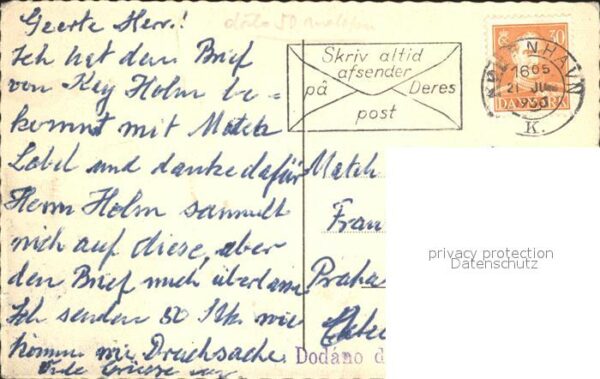 Geerte Herr!
Ich hat den Brief
von Kay Holm be=
kommt mit Match
Label und danke dafür
Herrn Holm sammelt
nich auf diese, aber
den Brief mich
Ich senden 50 Stk. wie
Drucksache.
Skriv altid
afsender
på Deres
post
KØBENHAVN
1605
K.
30
DANMARK
Match
Fran
Praha
Dodáno d
privacy protection
Datenschutz